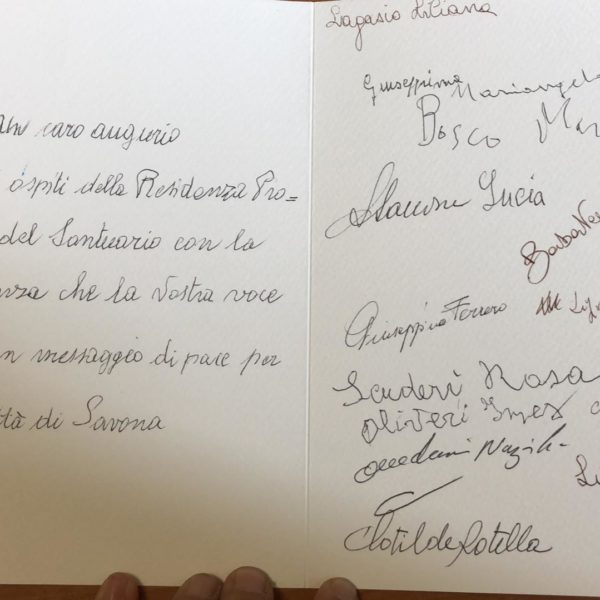 caro augurio
ospiti della Residenza Pro=
del Santuario con la
nza che la Vostra voce
n messaggio di pace per
tà di Savona
Lagasio Liliana
Giuseppina Mariangela
Bosco Mar
Lucia
Giuseppina Ferrero
Scuderi Rosa
Oliveri Ines
Clotilde Rotella